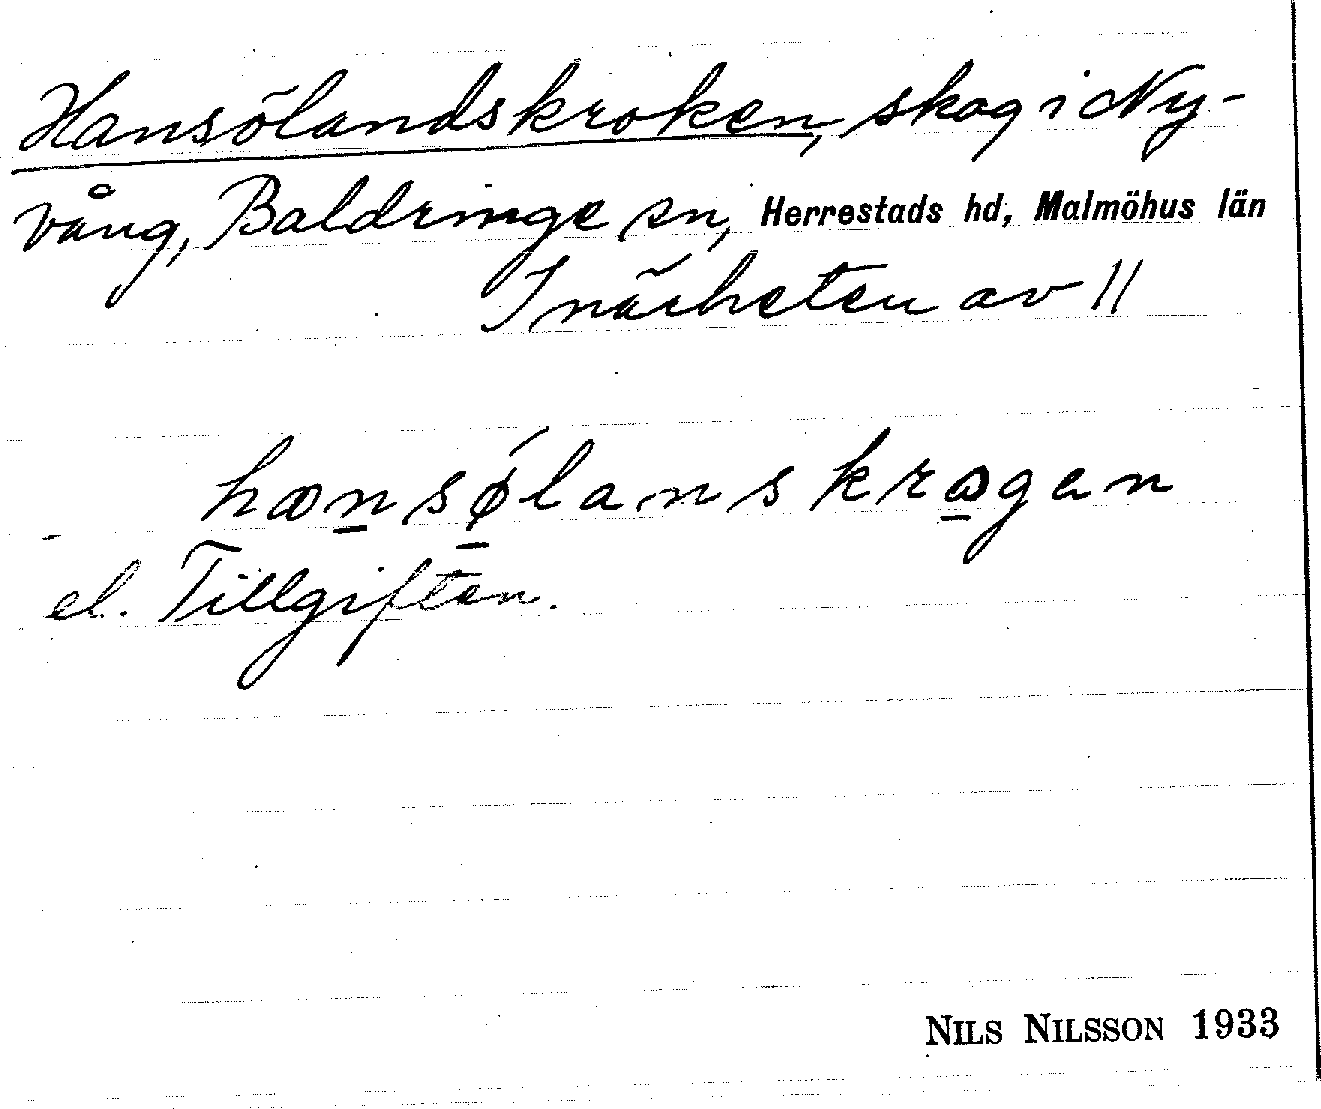 Hansölandskroken, skog i Ny-
vång, Baldringe sn, Herrestads hd, Malmöhus län
I närheten av 11
hansǿlanskrogen
el. Tillgiften.
NILS NILSSON 1933